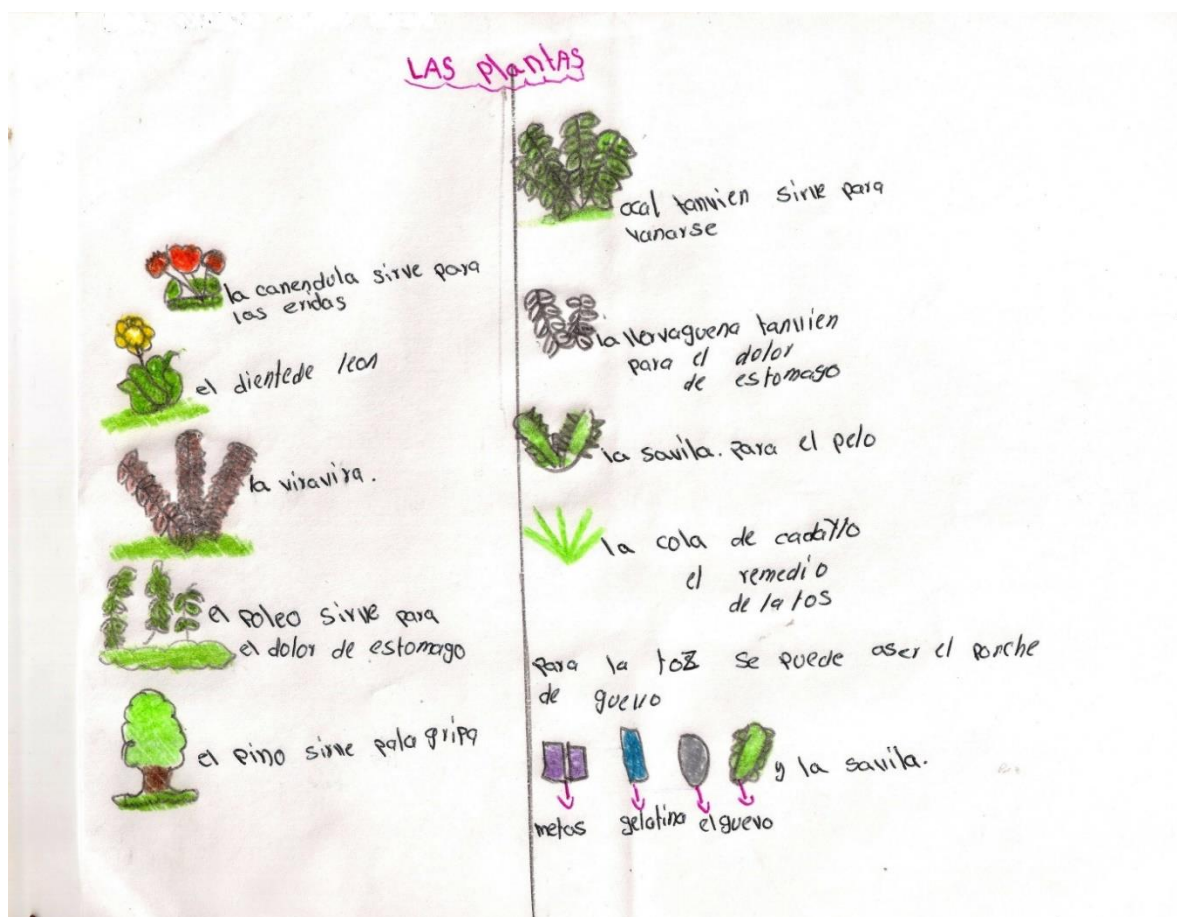 LAS PlantAS
la canendula sirve para
las eridas
el dientede leon
la viravira.
el Poleo sirve para
el dolor de estomago
el pino sirve pala gripa
ocal tanvien sirve para
vanarse
la llervaguena tanvien
para el dolor
de estomago
la savila. para el pelo
la cola de cadallo
el remedio
de la tos
Para la toz se puede aser el ponche
de guevo
y la savila.
metas gelatina el guevo